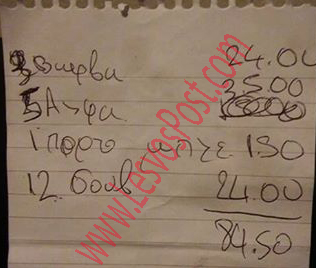 3 Βαρβα 24.00
5 Αλφα 35.00
1 150
12 σουβ 24.00
84.50
www.LesvosPost.com